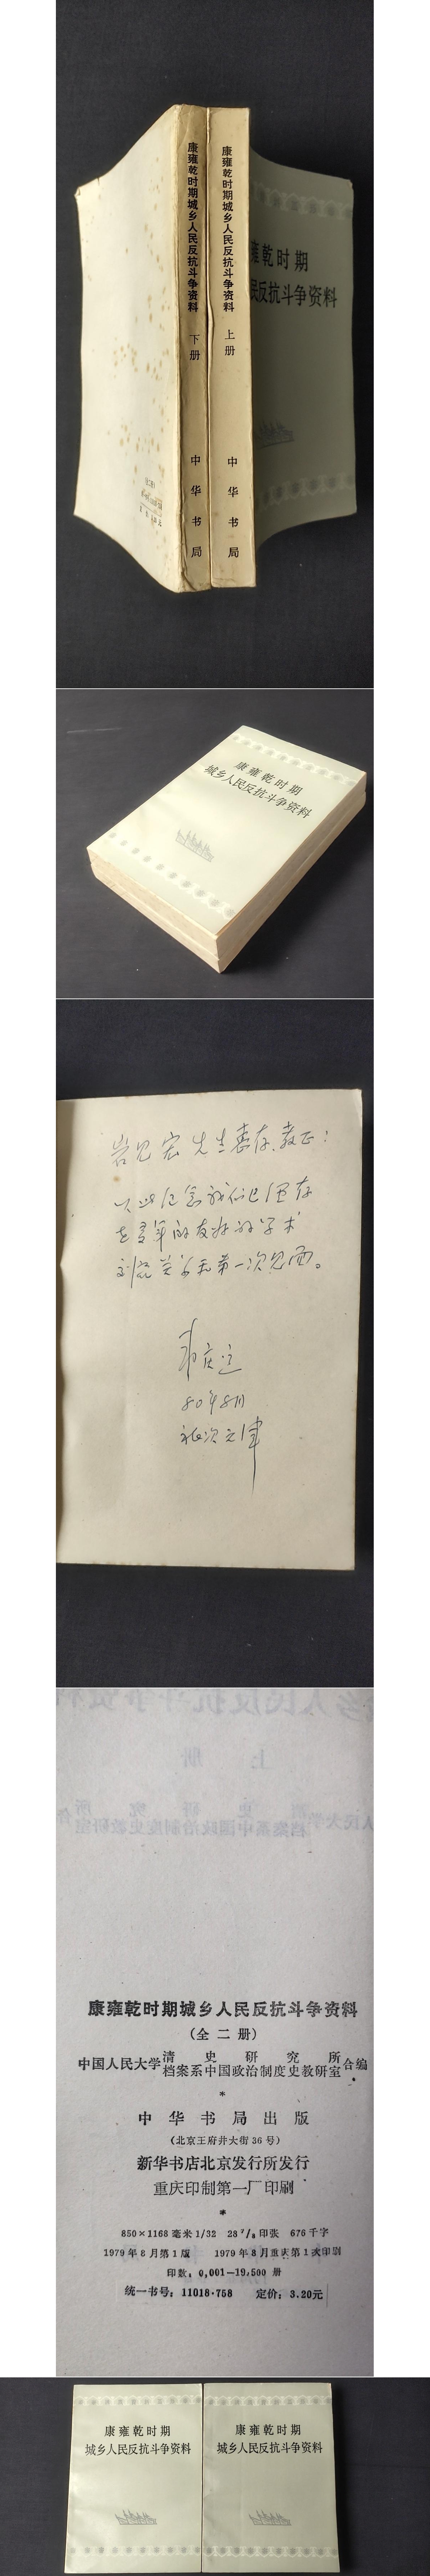 康雍乾时期城乡人民反抗斗争资料 下册 中华书局
康雍乾时期城乡人民反抗斗争资料 上册 中华书局
雍乾时期
民反抗斗争资料
康雍乾时期
城乡人民反抗斗争资料
岩见宏先生惠存、教正:
以此纪念我们已保存
多年的友好的学术
关系和第一次见面。
韦庆远
80年8月
于天津
康雍乾时期城乡人民反抗斗争资料
(全二册)
中国人民大学清史研究所
档案系中国政治制度史教研室合编
*
中华书局出版
(北京王府井大街36号)
新华书店北京发行所发行
重庆印制第一厂印刷
*
850×1168毫米1/32 28 7/8印张 676千字
1979年8月第1版 1979年8月重庆第1次印刷
印数:0,001—19,500册
统一书号:11018·758 定价:3.20元
康雍乾时期
城乡人民反抗斗争资料
康雍乾时期
城乡人民反抗斗争资料